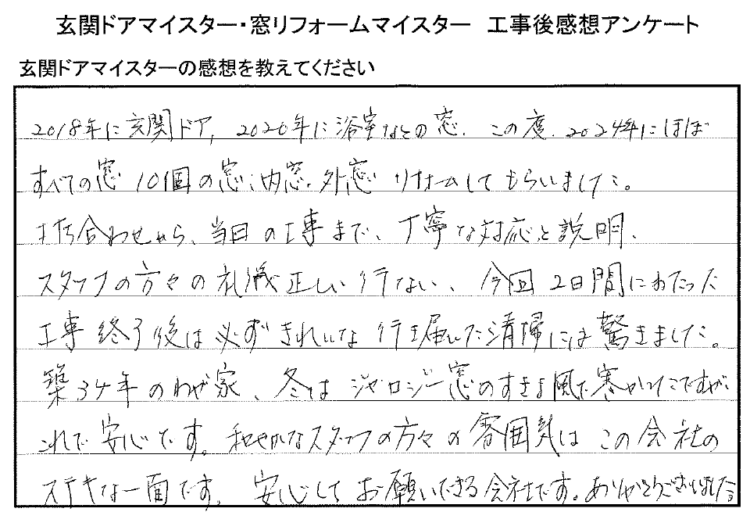 玄関ドアマイスター・窓リフォームマイスター 工事後感想アンケート
玄関ドアマイスターの感想を教えてください
2018年に玄関ドア、2020年に浴室などの窓、この度、2024年にほぼ
すべての窓 10個の窓、内窓、外窓 リフォームしてもらいました。
打ち合わせから、当日の工事まで、丁寧な対応と説明、
スタッフの方々の礼儀正しい行ない、今回2日間にわたった
工事終了後は必ずきれいな行き届いた清掃には驚きました。
築34年のわが家、冬は ジャロジー窓のすきま風で寒かったですが、
これで安心です。和やかなスタッフの方々の雰囲気はこの会社の
ステキな一面です。安心してお願いできる会社です。ありがとうございました